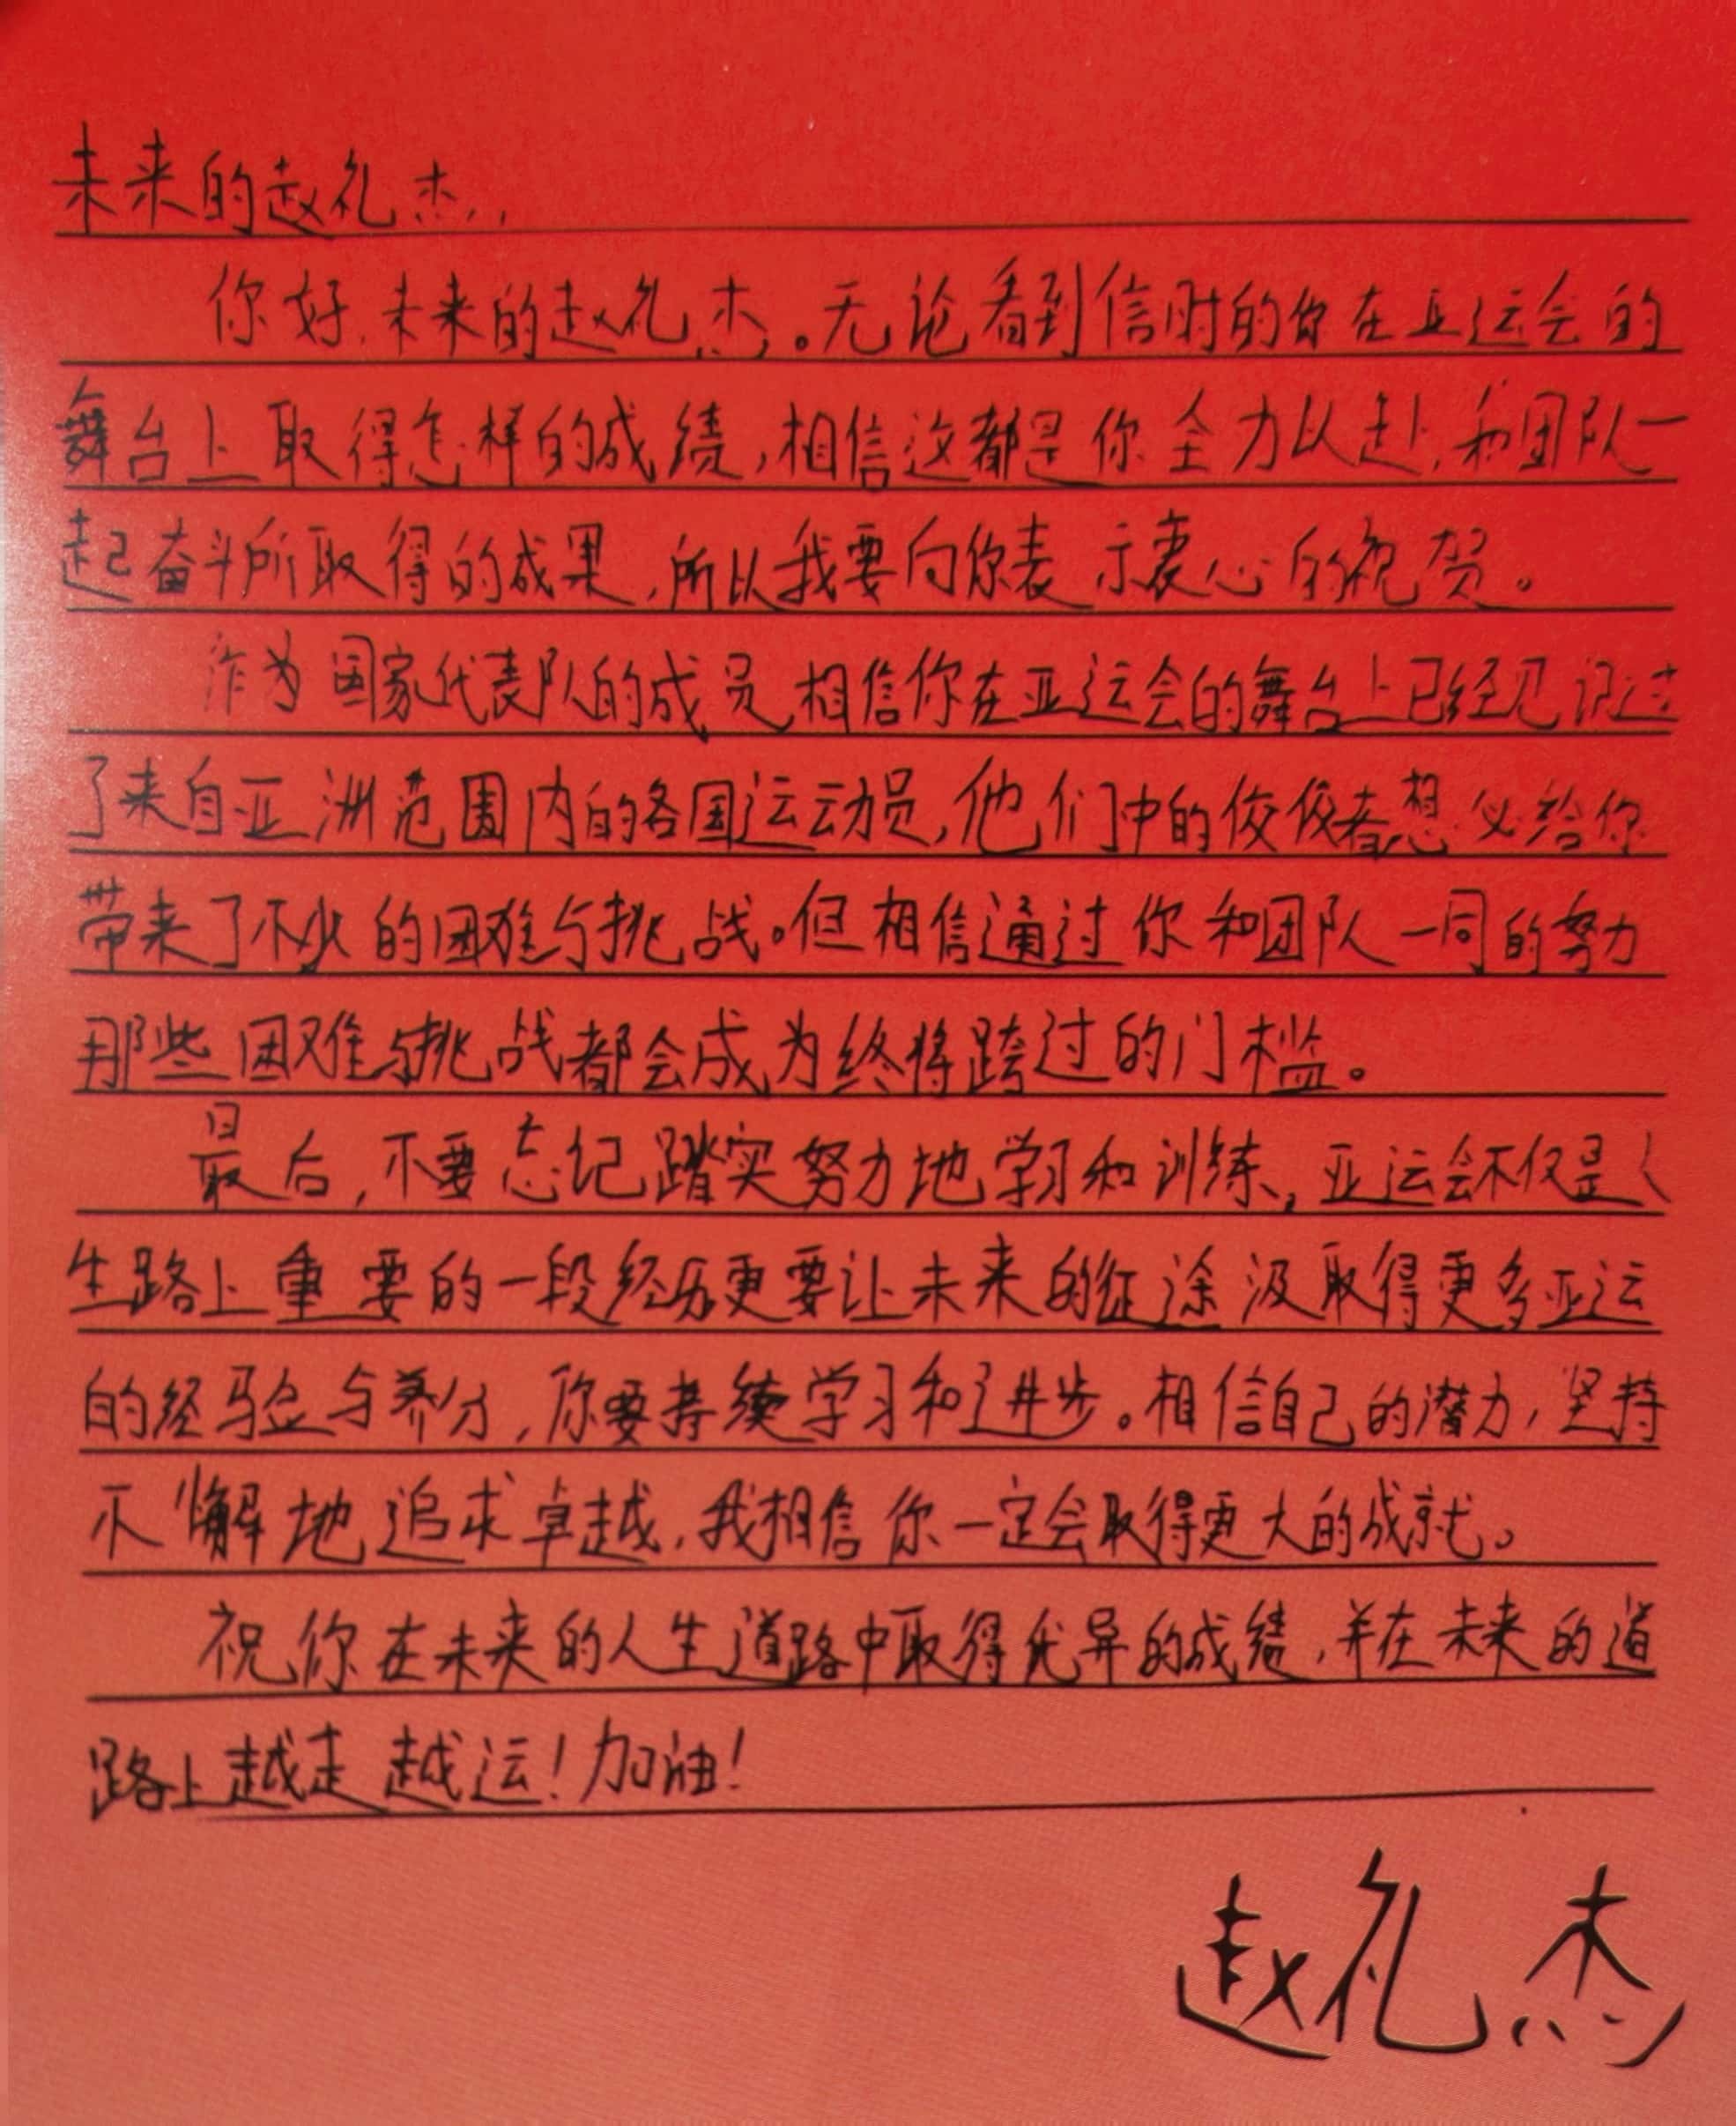 未来的赵礼杰：
你好，未来的赵礼杰。无论看到信时的你在亚运会的
舞台上取得怎样的成绩，相信这都是你全力以赴，和团队一
起奋斗所取得的成果，所以我要向你表示衷心的祝贺。
作为国家代表队的成员相信你在亚运会的舞台上已经见识过
了来自亚洲范围内的各国运动员，他们中的佼佼者想必给你
带来了不少的困难与挑战。但相信通过你和团队一同的努力
那些困难与挑战都会成为终将跨过的门槛。
最后，不要忘记踏实努力地学习和训练，亚运会不仅是人
生路上重要的一段经历更要让未来的征途汲取得更多亚运
的经验与养分，你要持续学习和进步。相信自己的潜力，坚持
不懈地追求卓越，我相信你一定会取得更大的成就。
祝你在未来的人生道路中取得优异的成绩，并在未来的道
路上越走越运！加油！
赵礼杰